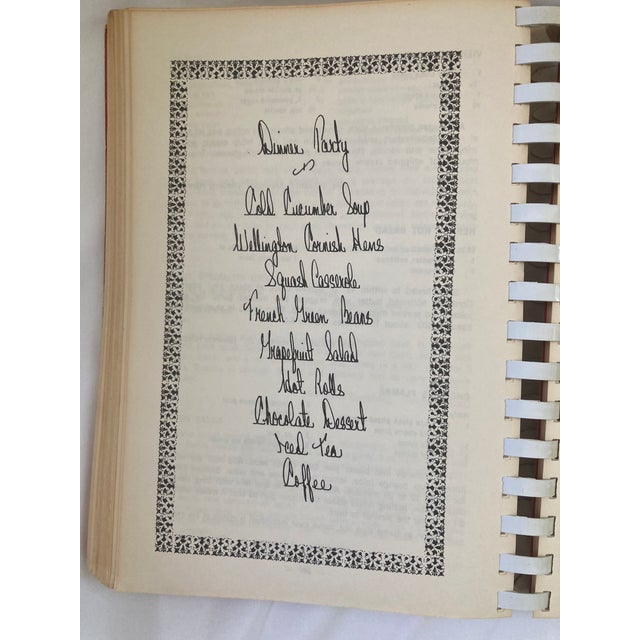 Dinner Party
Cold Cucumber Soup
Wellington Cornish Hens
Squash Casserole
French Green Beans
Grapefruit Salad
Hot Rolls
Chocolate Dessert
Iced Tea
Coffee